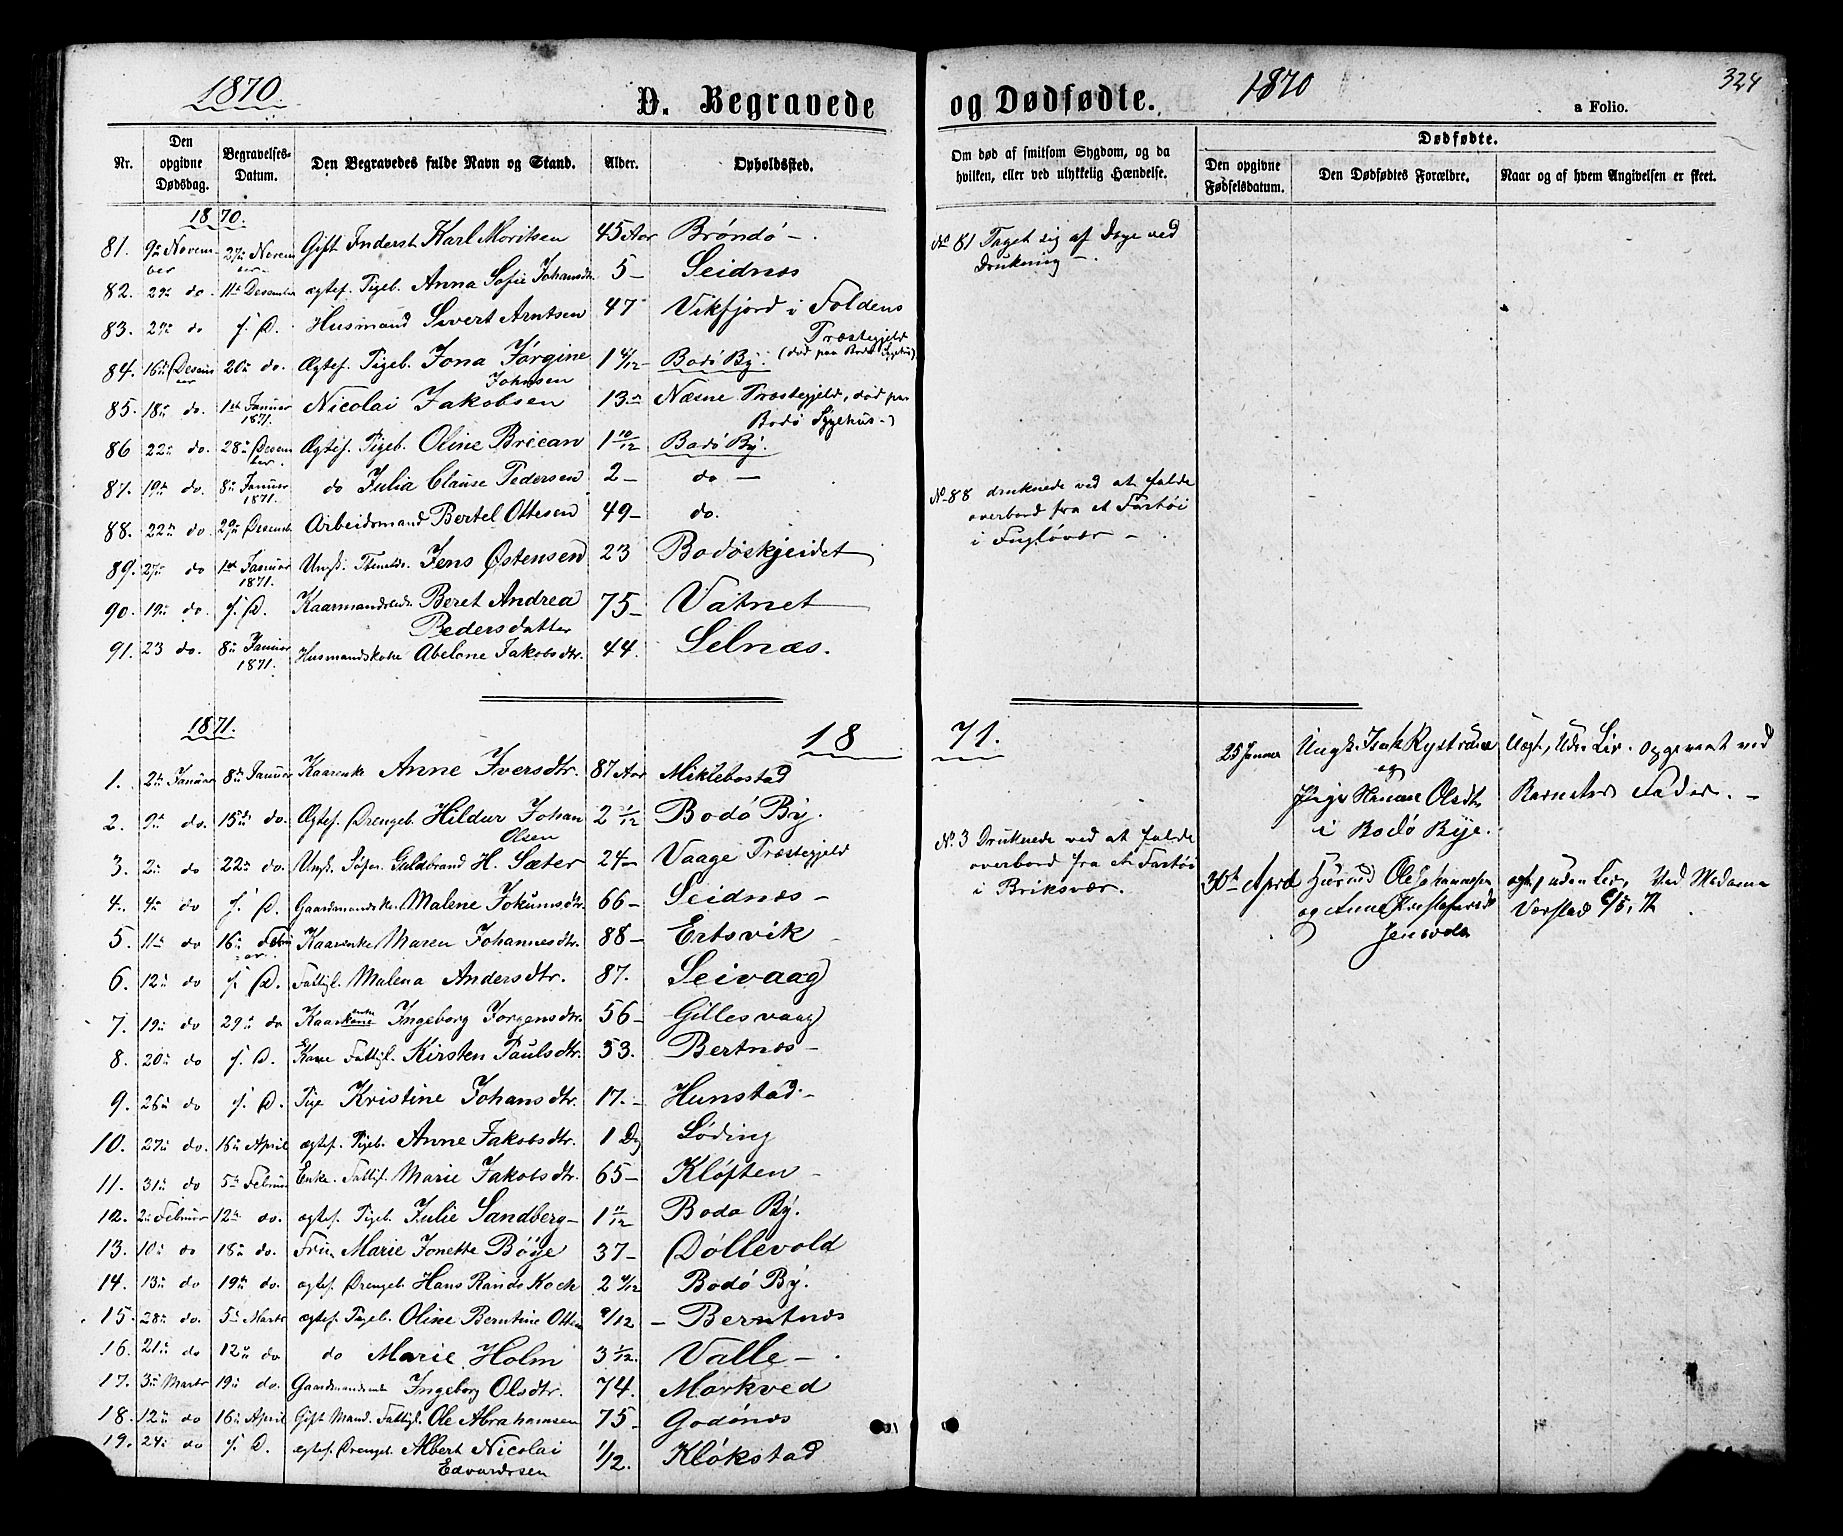 1870.
D. Begravede
Nr. Den opgivne Dødsdag. Begravelses-Datum. Den Begravedes fulde Navn og Stand. Alder. Opholdssted.
1870.
81. 9de November 27de November Gift Inderst Karl Moritsen 45 Aar Brøndø -
82. 29de do. 11te Desember ægtef. Pigeb. Anna Sofie Johansdtr. 5 - Seidnæs
83. 29de do j. D. Husmand Sivert Arntsen 47 Vikfjord i Foldens Præstegjeld
84. 16de Desember 20de do. Ægtef. Pigeb. Jona Jørgine Johnsen 1 Bodø By. (død paa Bodø Sygehus)
85. 18de do. 1ste Januar 1871. Nicolai Jakobsen 13 Næsne Præstegjeld, død paa Bodø Sygehus -)
86 22de do. 28de Desember Ægtef. Pigeb. Oline Breean 1 10/12 Bodø By.
87. 19de do. 8de Januar 1871. do Julia Clause Pedersen 2 - do -
88. 22de do. 29de Desemb Arbeidsmand Bertel Ottesen 49 - do.
89. 27de do 1ste Januar 1871. Ungk. Jens Østensen 23 Bodøskjeidet
90. 19de do. j. D. Beret Andrea Pedersdatter 75 - Vatnet
91. 23 do. 8de Januar 1871. Husmandskone Abelone Jakobsdtr. 44. Selnæs.
1871. 18
1. 2de Januar 8de Januar Kaarenke Anne Iversdtr. 87 Aar Miklebostad
2. 9de do. 15de do. Ægtef. Drengeb. Hildur Johan Olsen 2 1/12 Bodø By.
3. 2de do 22de do. Ungk. Guldbrand H. Sæter 24 - Vaage Præstegjeld
4. 4de do j. D. Gaardmandske. Malene Jokumsdtr. 66 - Seidnæs -
5. 11te do 16de Februar. Kaarenke Maren Johannesdtr. 88 - Ertsvik
6. 12te do j. D. Fattigl. Malena Andersdtr. 87. Seivaag
7. 19de do 29de do Ingeborg Jorgensdtr. 56 - Gillesvaag
8. 20de do j. D. Fattigl. Kirsten Paulsdtr. 53. Bertnæs -
9. 26de do j. D. Pige Kristine Johansdtr. 17. - Hunstad -
10. 27de do. 16de April ægtef. Pigeb. Anne Jakobsdtr. 1 Dg Løding
11. 31te do 5te Februar Enke. Fattigl. Marie Jakobsdtr. 65 - Kløften -
12. 2de Februar 12te do. ægtef. Pigeb. Julie Sandberg - 1 11/12 Bodø By.
13. 10de do 18de do. Fru Marie Jonette Bøye 37 - Døllevold
14. 13de do 19de do. ægtef. Drengeb. Hans Rands Koch 2 Bodø By.
15. 28de do. 5te Marts ægtef. Pigeb. Oline Berntine Otten 9/12 - Berntnæs
16. 21de do 12te do do Marie Holm 3 1/12. Valle -
17. 3de Marts 19de do. Ingeborg Olsdtr. 74. Mørkved
18. 12te do 16de April Gift Mand. Fattigl. Ole Abrahamsen 75 - Godønæs
19. 24de do j. D. ægtef. Drengeb. Albert Nicolai Edvardsen 1/12. Kløkstad
og Dødfødte. 1870 324
a Folio.
Om død af smitsom Sygdom, og da hvilken, eller ved ulykkelig Hændelse.
Dødfødte.
Den opgivne Fødselsdatum. Den Dødfødtes Forældre. Naar og af hvem Angivelsen er skeet.
No 81 Taget sig af Dage ved
Drukning -.
No 88 druknede ved at falde
overbord fra et Fartøi
i Fugløvær -
71.
25 Januar Ungk. Isak Rystrøm
og
Pige Hanna Olsdt
i Bodø Bye.
Uægt, Uden Liv. opgivet ved
Barnets Fader. -
No. 3 Druknede ved at falde
overbord fra et Fartøi
i Briksvær.
30te April Ole Johannesen
og Anna Kristofersd
Jensvoll
ægt, uden Liv, Ved Madame
Værstad 6/5, 71